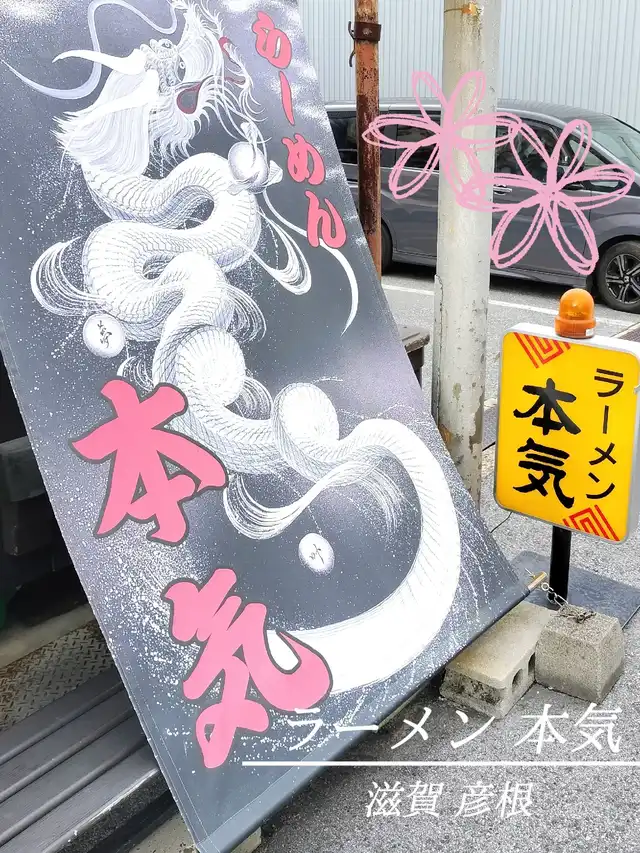 らーめん
本気
夢
叶
ラーメン
本気
ラーメン 本気
滋賀 彦根